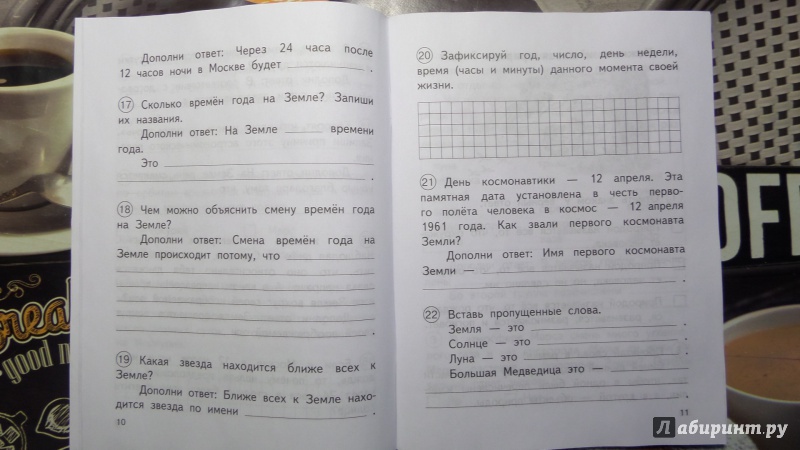 Дополни ответ: Через 24 часа после
12 часов ночи в Москве будет ____________ .
17 Сколько времён года на Земле? Запиши
их названия.
Дополни ответ: На Земле ______ времени
года.
Это ______________________________ .
18 Чем можно объяснить смену времён года
на Земле?
Дополни ответ: Смена времён года на
Земле происходит потому, что ____________
.
19 Какая звезда находится ближе всех к
Земле?
Дополни ответ: Ближе всех к Земле нахо-
дится звезда по имени __________________ .
10
20 Зафиксируй год, число, день недели,
время (часы и минуты) данного момента своей
жизни.
21 День космонавтики — 12 апреля. Эта
памятная дата установлена в честь перво-
го полёта человека в космос — 12 апреля
1961 года. Как звали первого космонавта
Земли?
Дополни ответ: Имя первого космонавта
Земли — ______________________________
.
22 Вставь пропущенные слова.
Земля — это ____________________ .
Солнце — это ____________________ .
Луна — это ____________________ .
Большая Медведица это — __________
.
11
Лабиринт.ру
OFF
good